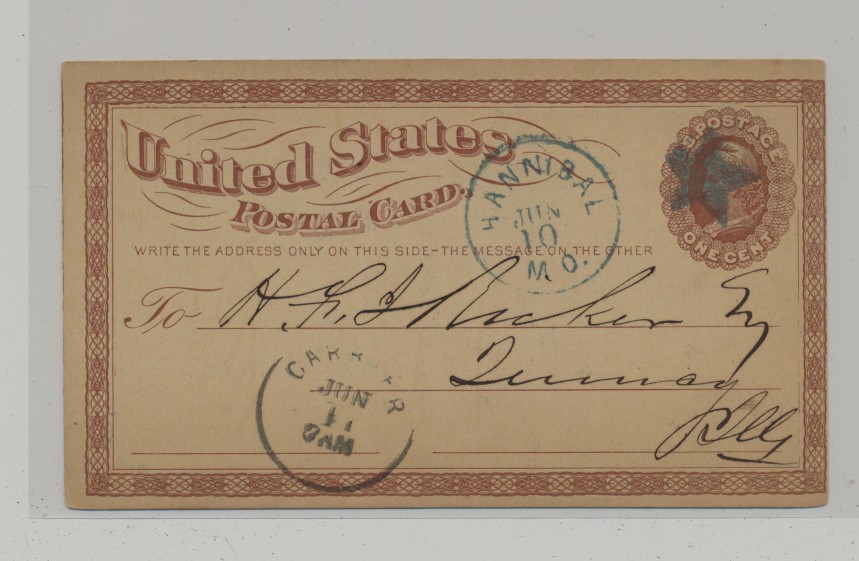 United States
POSTAL CARD.
U.S. POSTAGE
ONE CENT
HANNIBAL
JUN
10
MO.
WRITE THE ADDRESS ONLY ON THIS SIDE–THE MESSAGE ON THE OTHER
To H. F. J Ricker Esq
Quincy
Ills
CARRIER
JUN
11
9AM